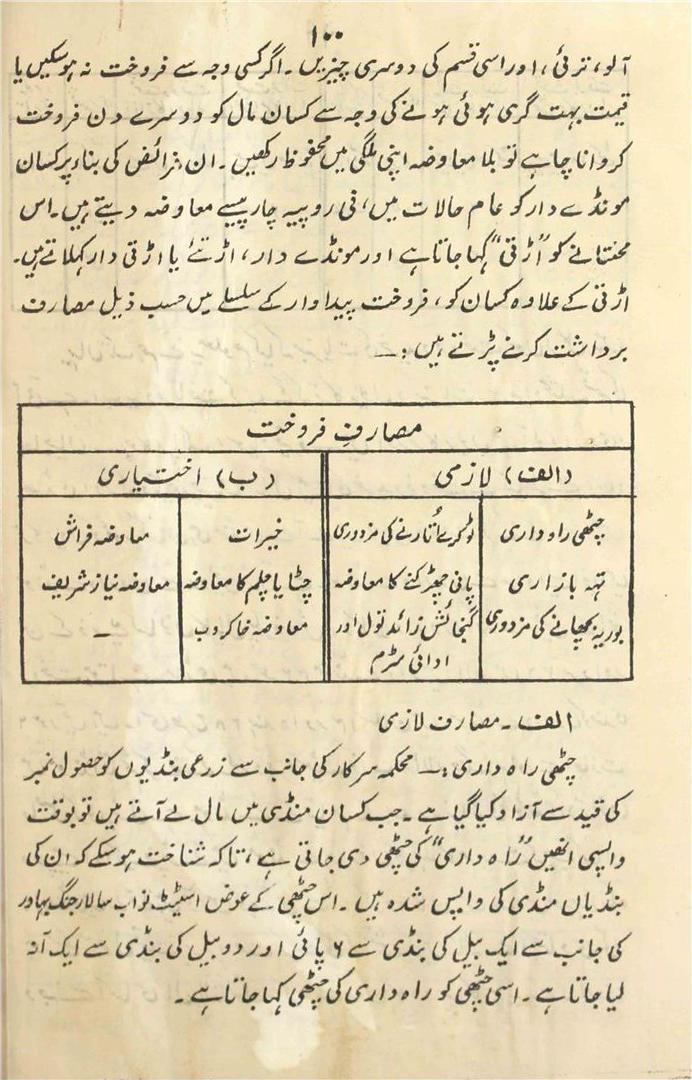 ۱۰۰
آلو، ترئی، اور اسی قسم کی دوسری چیزیں۔ اگر کسی وجہ سے فروخت نہ ہو سکیں یا
قیمت بہت گری ہوئی ہونے کی وجہ سے کسان مال کو دوسرے دن فروخت
کروانا چاہے تو بلا معاوضہ اپنی ملگی میں محفوظ رکھیں۔ ان فرائض کی بناء پر کسان
مونڈے دار کو عام حالات میں، فی روپیہ چار پیسے معاوضہ دیتے ہیں۔ اس
محنتانے کو "اڑتی" کہا جاتا ہے اور مونڈے دار، اڑتئے یا اڑتی دار کہلاتے ہیں۔
اڑتی کے علاوہ کسان کو، فروخت پیداوار کے سلسلے میں حسب ذیل مصارف
برداشت کرنے پڑتے ہیں:۔
مصارفِ فروخت
(الف) لازمی (ب) اختیاری
چٹھی راہ داری ٹوکرے اُتارنے کی مزدوری خیرات معاوضہ فراش
تہہ بازاری پانی چھڑکنے کا معاوضہ چٹا یا چلم کا معاوضہ معاوضہ نیاز شریف
بوریہ بچھانے کی مزدوری گنجائش زائد تول اور معاوضہ خاکروب ـ
ادائی سڑم
الف۔ مصارف لازمی
چٹھی راہ داری:۔ محکمہ سرکار کی جانب سے زرعی بنڈیوں کو حصول نمبر
کی قید سے آزاد کیا گیا ہے۔ جب کسان منڈی میں مال لے آتے ہیں تو بوقت
واپسی انھیں "راہ داری" کی چٹھی دی جاتی ہے، تاکہ شناخت ہو سکے کہ ان کی
بنڈیاں منڈی کی واپس شدہ ہیں۔ اس چٹھی کے عوض اسٹیٹ نواب سالار جنگ بہادر
کی جانب سے ایک بیل کی بنڈی سے ۶ پائی اور دو بیل کی بنڈی سے ایک آنہ
لیا جاتا ہے۔ اسی چٹھی کو راہ داری کی چٹھی کہا جاتا ہے۔